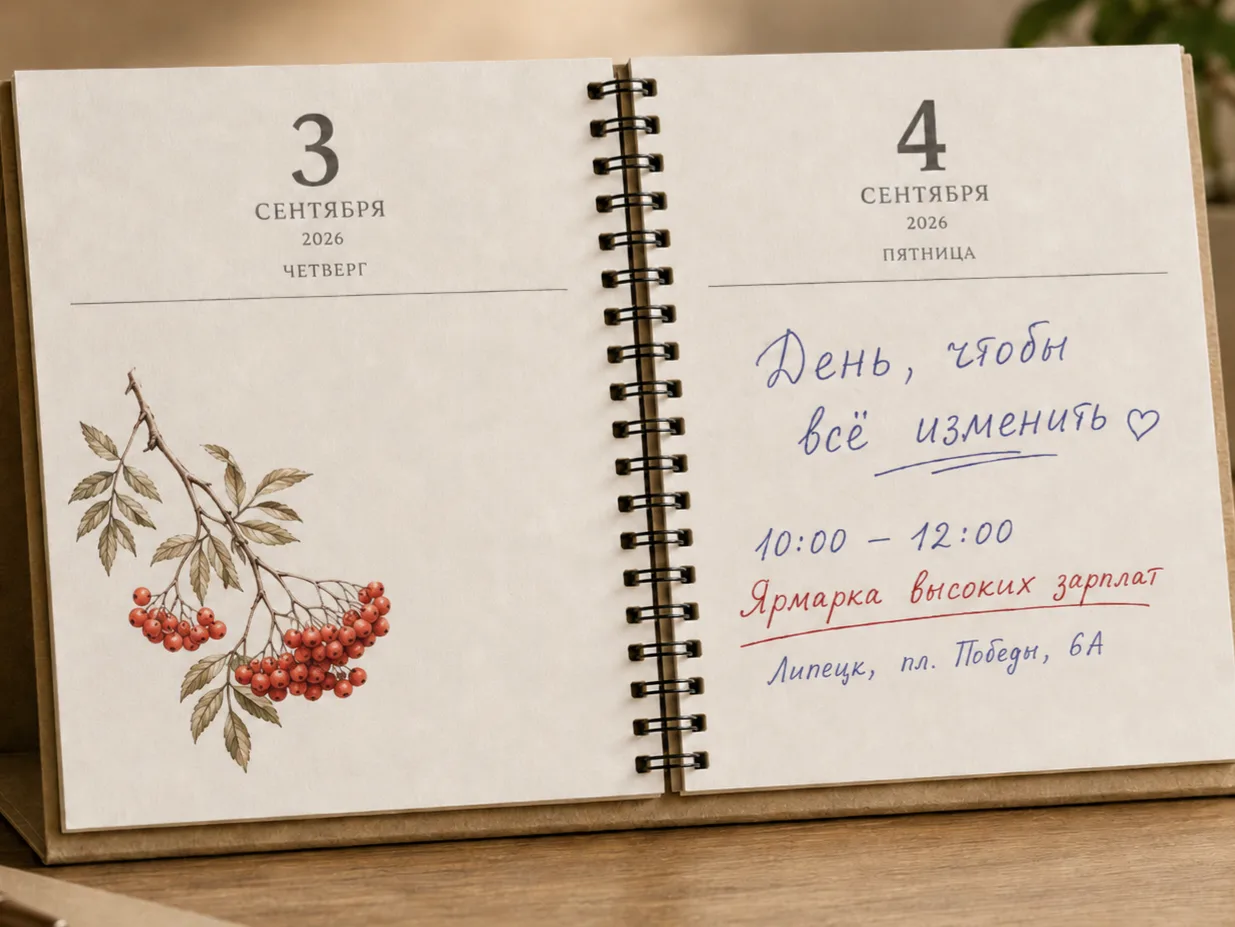 3
СЕНТЯБРЯ
2026
ЧЕТВЕРГ
4
СЕНТЯБРЯ
2026
ПЯТНИЦА
День, чтобы
всё изменить ♡
10:00 – 12:00
Ярмарка высоких зарплат
Липецк, пл. Победы, 6А